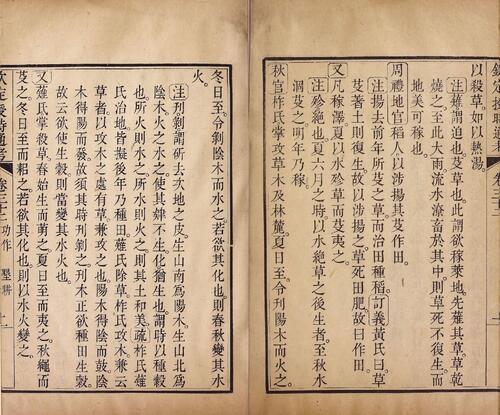 以殺草。如以熱湯。
注薙謂迫也芟草也。此謂欲稼萊地。先薙其草。草乾
燒之。至此大雨流水潦畜於其中。則草死不復生。而
地美可稼也。
周禮地官稻人。以涉揚其芟作田。
注揚去前年所芟之草。而治田種稻。訂義黃氏曰。草
芟著土則復生。故以涉揚之。草死田肥。故曰作田。
又凡稼澤。夏以水殄草而芟夷之。
注殄絕也。夏六月之時。以水絕草之後生者。至秋水
涸芟之。明年乃稼。
秋官柞氏掌攻草木及林麓。夏日至。令刋陽木而火之。
冬日至。令剝陰木而水之。若欲其化也。則春秋變其水
火。
注刋剝謂斫去次地之皮。生山南為陽木。生山北為
陰木。火之水之。使其肄不生。化猶生也。謂時以種穀
也。所火則水之。所水則火之。則其土和美。疏柞氏薙
氏治地。皆擬後年乃種田。薙氏除草。柞氏攻木。兼云
草者。以攻木之處有草。兼攻之也。陽木得陰而鼓。陰
木得陽而發。故須其時刋剝之。刋木正欲種田生穀。
故云欲使生穀。則當變其水火也。
又薙氏掌殺草。春始生而萌之。夏日至而夷之。秋繩而
芟之。冬日至而耜之。若欲其化也。則以水火變之。
欽定授時通考 卷三十二 功作 墾耕 十一